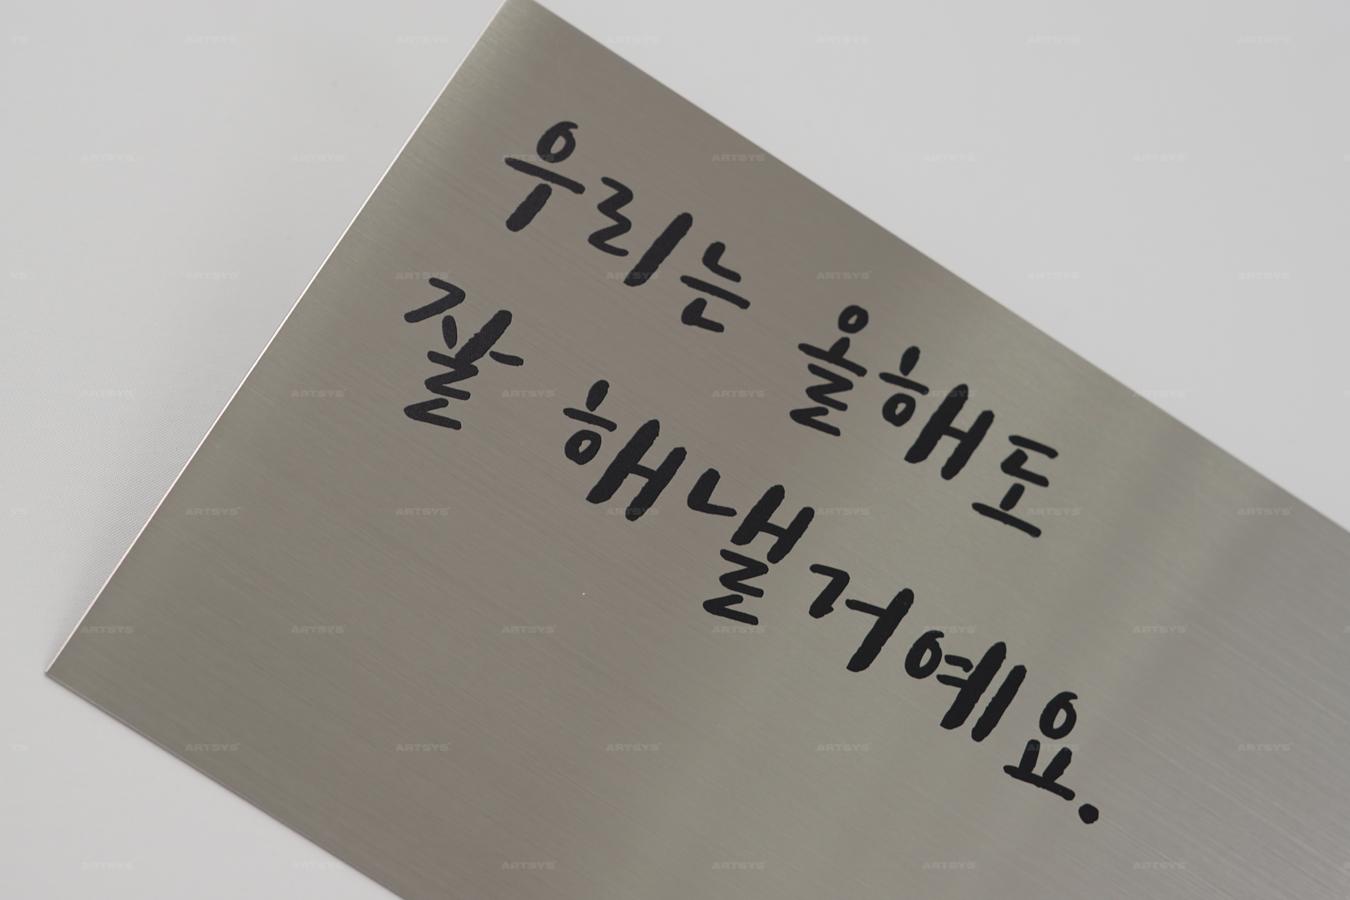 우리는 올해도
잘 해낼거예요.
ARTSYS